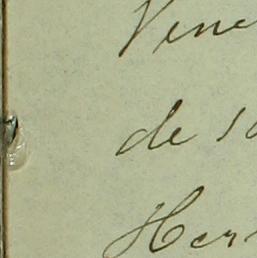 Vene
de 1
Her